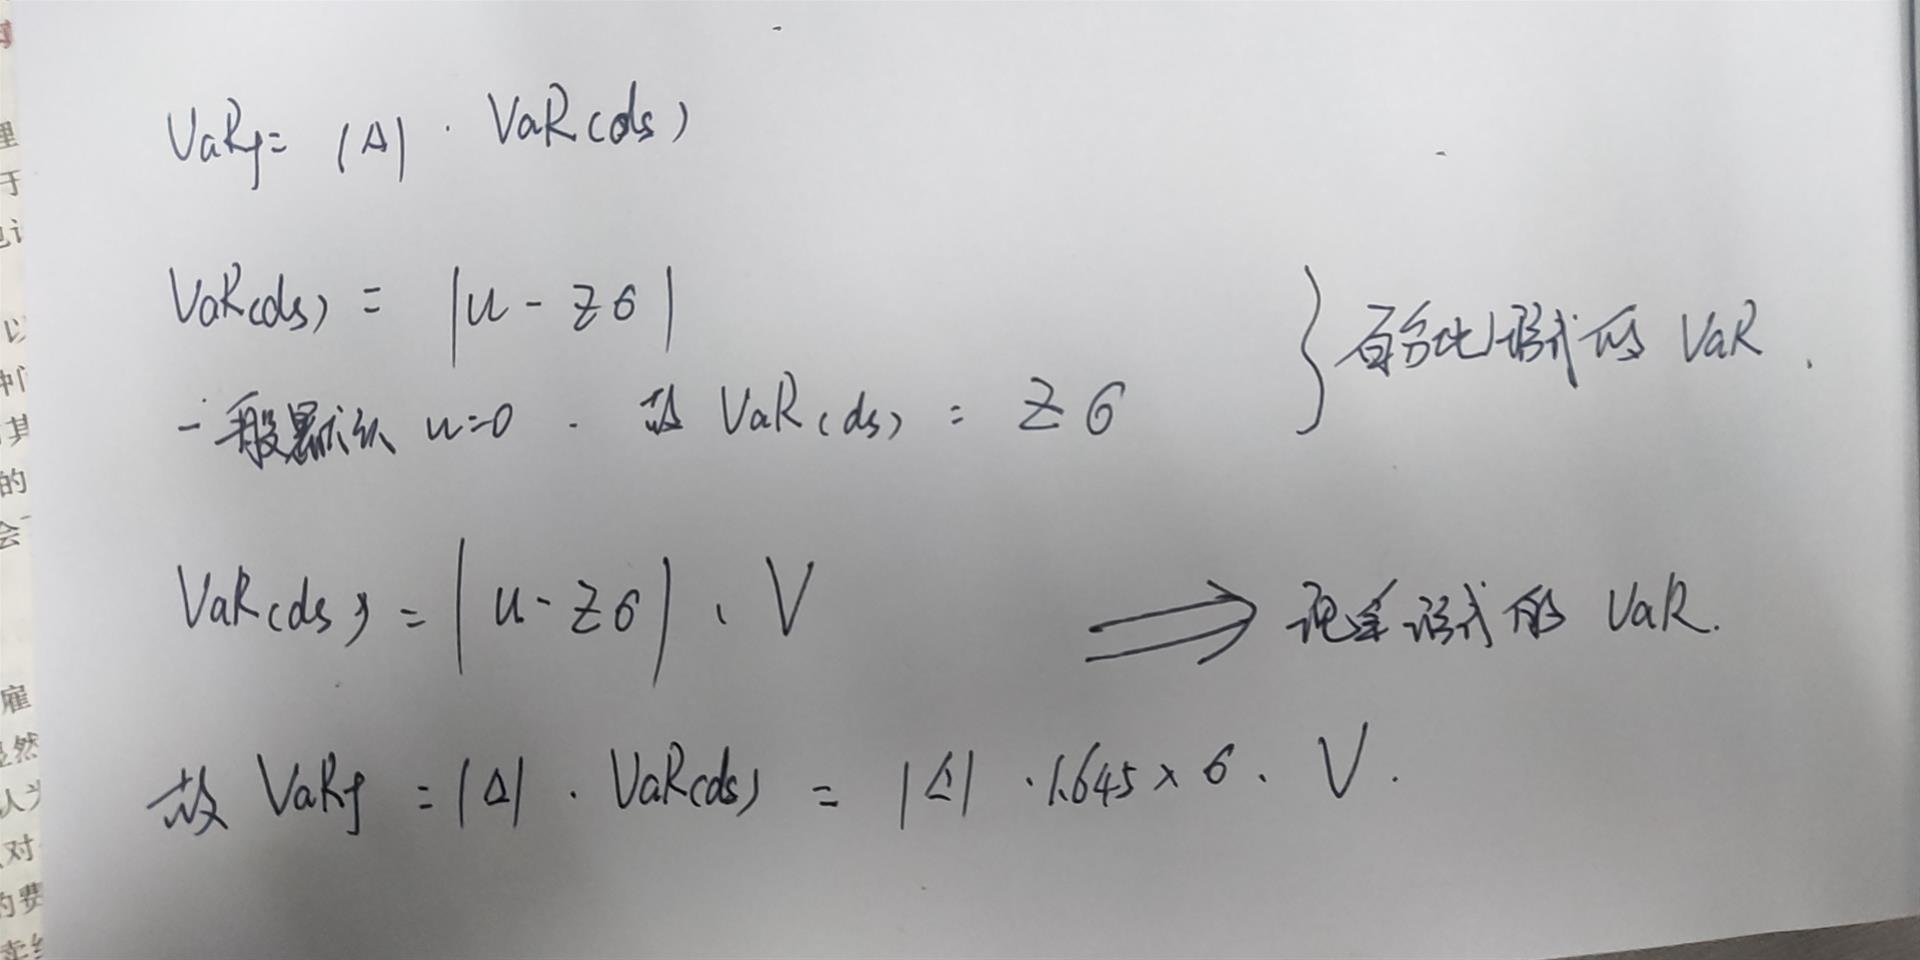 VaRf = |Δ| · VaR(ds)
VaR(ds) = |u - zσ|
一般默认 u=0 . 故 VaR(ds) = zσ } 百分比形式的 VaR .
VaR(ds) = |u - zσ| · V ⟹ 现金形式的 VaR.
故 VaRf = |Δ| · VaR(ds) = |Δ| · 1.645 × σ · V .
理
于
以
其
的
会
雇
显然
认为
对
的费
卖给